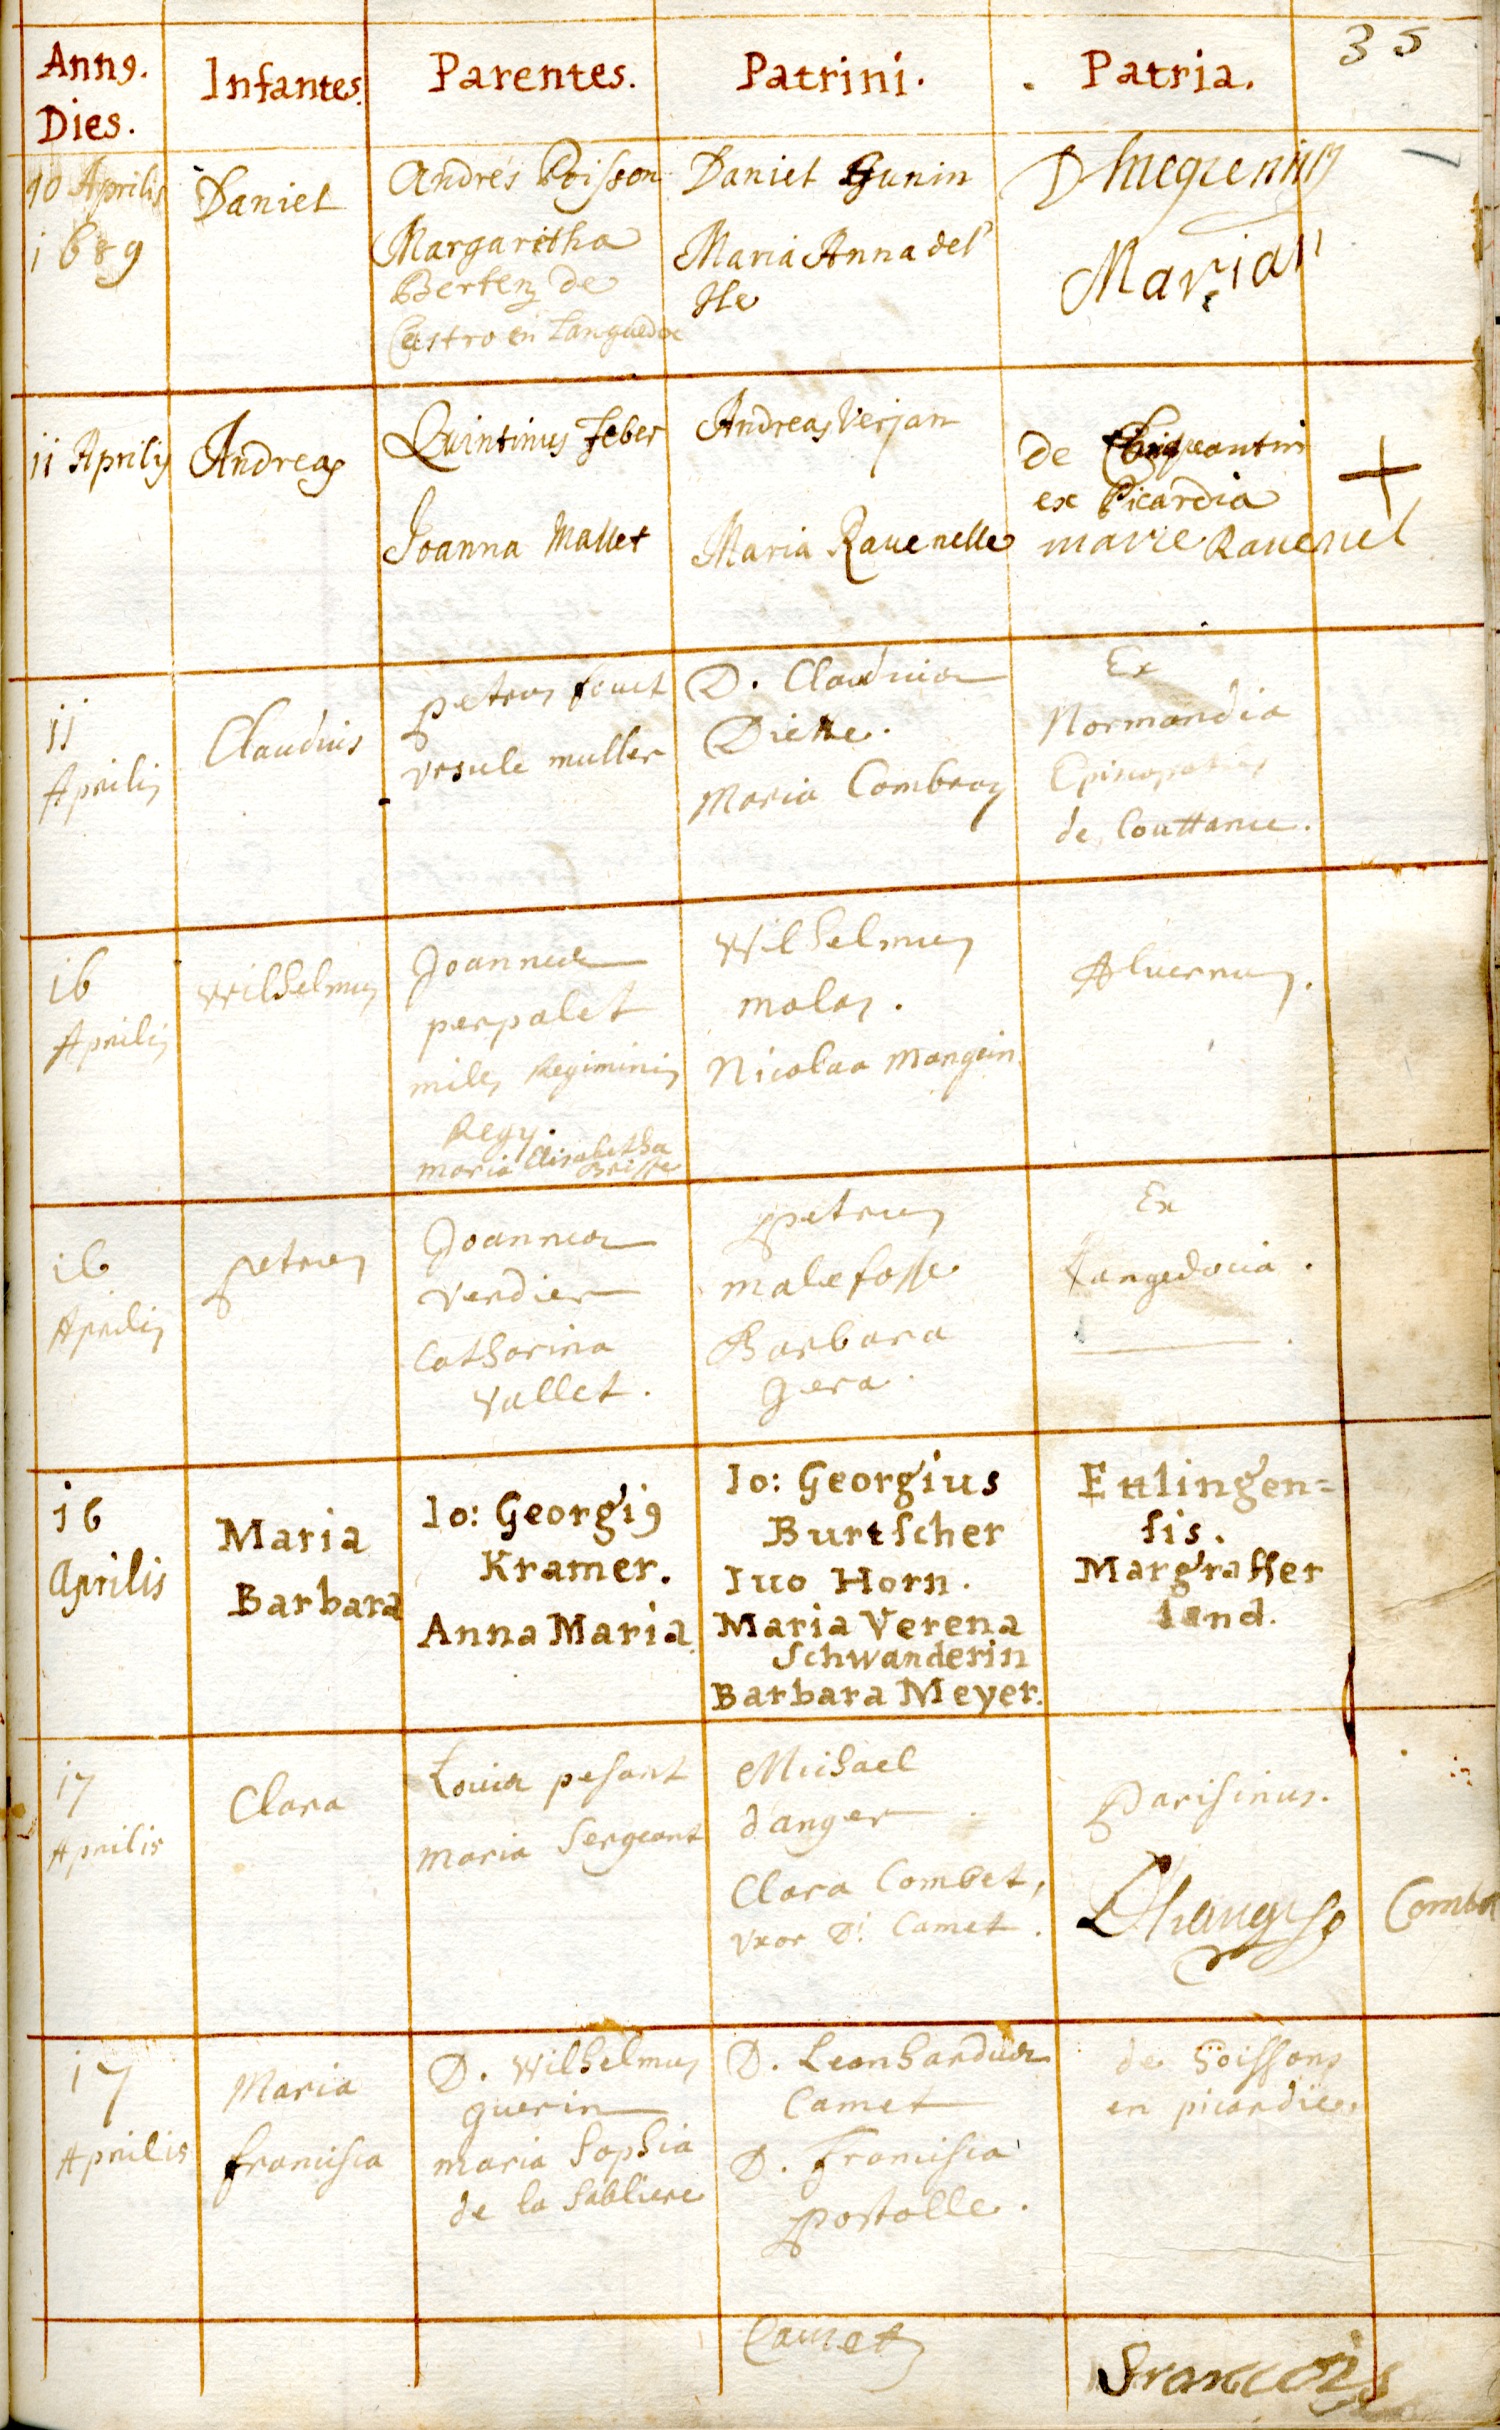 35
Anng.
Dies.
Infantes.
Parentes.
Patrini.
Patria.
10 Aprilis
1689
Daniel
Andres Poisson
Margaritha
Bertenz de
Castro en Languedoc
Daniel Hunin
Maria Anna del'
Ile
11 Aprilis
Andreas
Quintinus feber
Joanna Mallet
Andreas Verjan
Maria Rauenelle
de
ex Picardia
marie Rauenel
11
Aprilis
Claudius
petrus fouct
vrsule muller
D. Claudius
Diette.
Maria Combray
Ex
Normandia
Episcopatus
de Couttance.
16
Aprilis
Wilhelmus
Joannes
perpalet
miles Regiminis
Regy.
maria Elisabetha
Brisse
Wilhelmus
molas.
Nicolaa Mangein
Aluernus.
16
Aprilis
petrus
Joannes
verdier
Catharina
vallet.
petrus
malefosse
Barbara
gera.
Ex
Langedocia.
16
Aprilis
Maria
Barbara
Io: Georgi9
Kramer.
Anna Maria.
Io: Georgius
Burtscher
Iuo Horn.
Maria Verena
Schwanderin
Barbara Meyer.
Ettlingen=
sis.
Margraffer
land.
17
Aprilis
Clara
Louis pesant
maria Sergeant
Michael
d'anger.
Clara Combet,
vxor Di Camet.
Parisinus.
Combet
17
Aprilis
Maria
francisca
D. Wilhelmus
guerin
maria Sophia
de la Sabliere
D. Leonhardus
Camet
D. Francisca
postolle.
de Soissons
en picardie.
Camet
francois